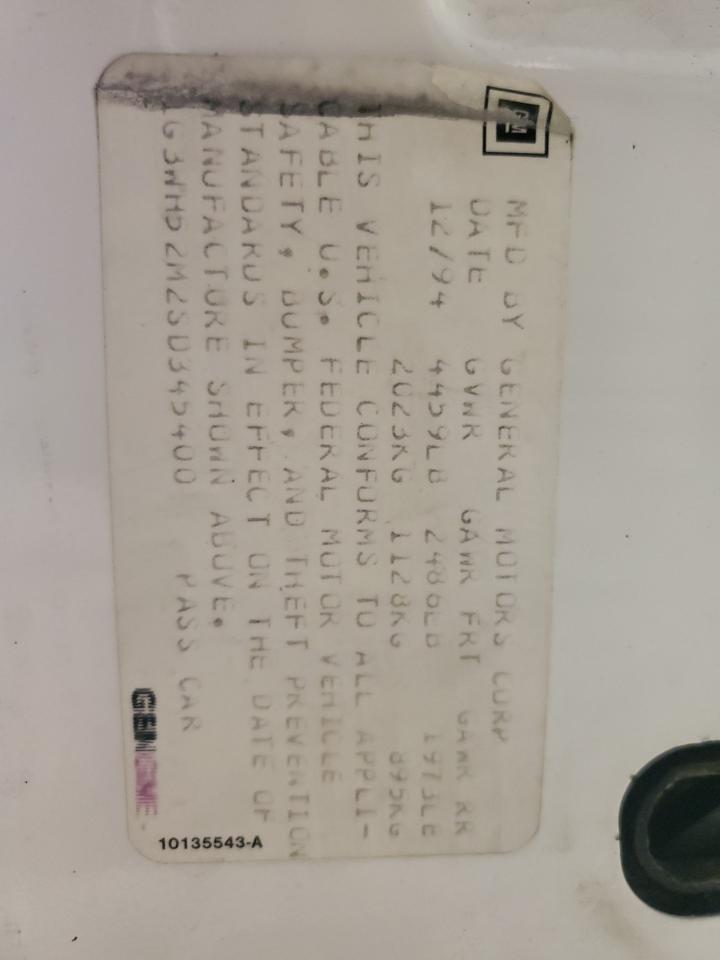 GM
MFD BY GENERAL MOTORS CORP
DATE GVWR GAWR FRT GAWR RR
12/94 4459LB 2486LB 1973LB
2023KG 1128KG 895KG
THIS VEHICLE CONFORMS TO ALL APPLI-
CABLE U.S. FEDERAL MOTOR VEHICLE
SAFETY, BUMPER, AND THEFT PREVENTION
STANDARDS IN EFFECT ON THE DATE OF
MANUFACTURE SHOWN ABOVE.
1G3WH52M2SD345400 PASS CAR
10135543-A